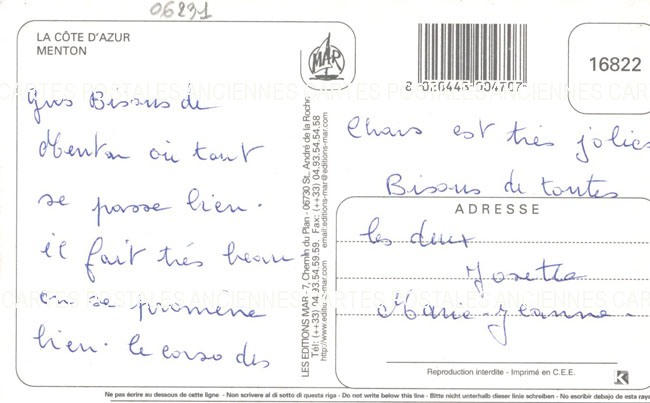 06231
LA CÔTE D'AZUR
MENTON
Gros Bisous de
Menton où tout
se passe bien.
il fait très beau
on se promène
bien. le corso des
MAR
LES EDITIONS MAR - 7, Chemin du Plan - 06730 St. André de la Roche
Tél. (++33) 04.93.54.59.59. Fax: (++33) 04.93.54.54.58
http://www.editions-mar.com email:editions-mar@editions-mar.com
16822
Chars est très jolies
Bisous de toutes
ADRESSE
les deux
Josette
Marie-Jeanne
Reproduction interdite - Imprimé en C.E.E.
K
Ne pas écrire au dessous de cette ligne - Non scrivere al di sotto di questa riga - Do not write below this line - Bitte nicht unterhalb dieser linie schreiben - No escribir debajo de esta raya
CARTES POSTALES ANCIENNES CARTES POSTALES ANCIENNES CAR
CARTES POSTALES ANCIENNES CARTES POSTALES ANCIENNES CAR